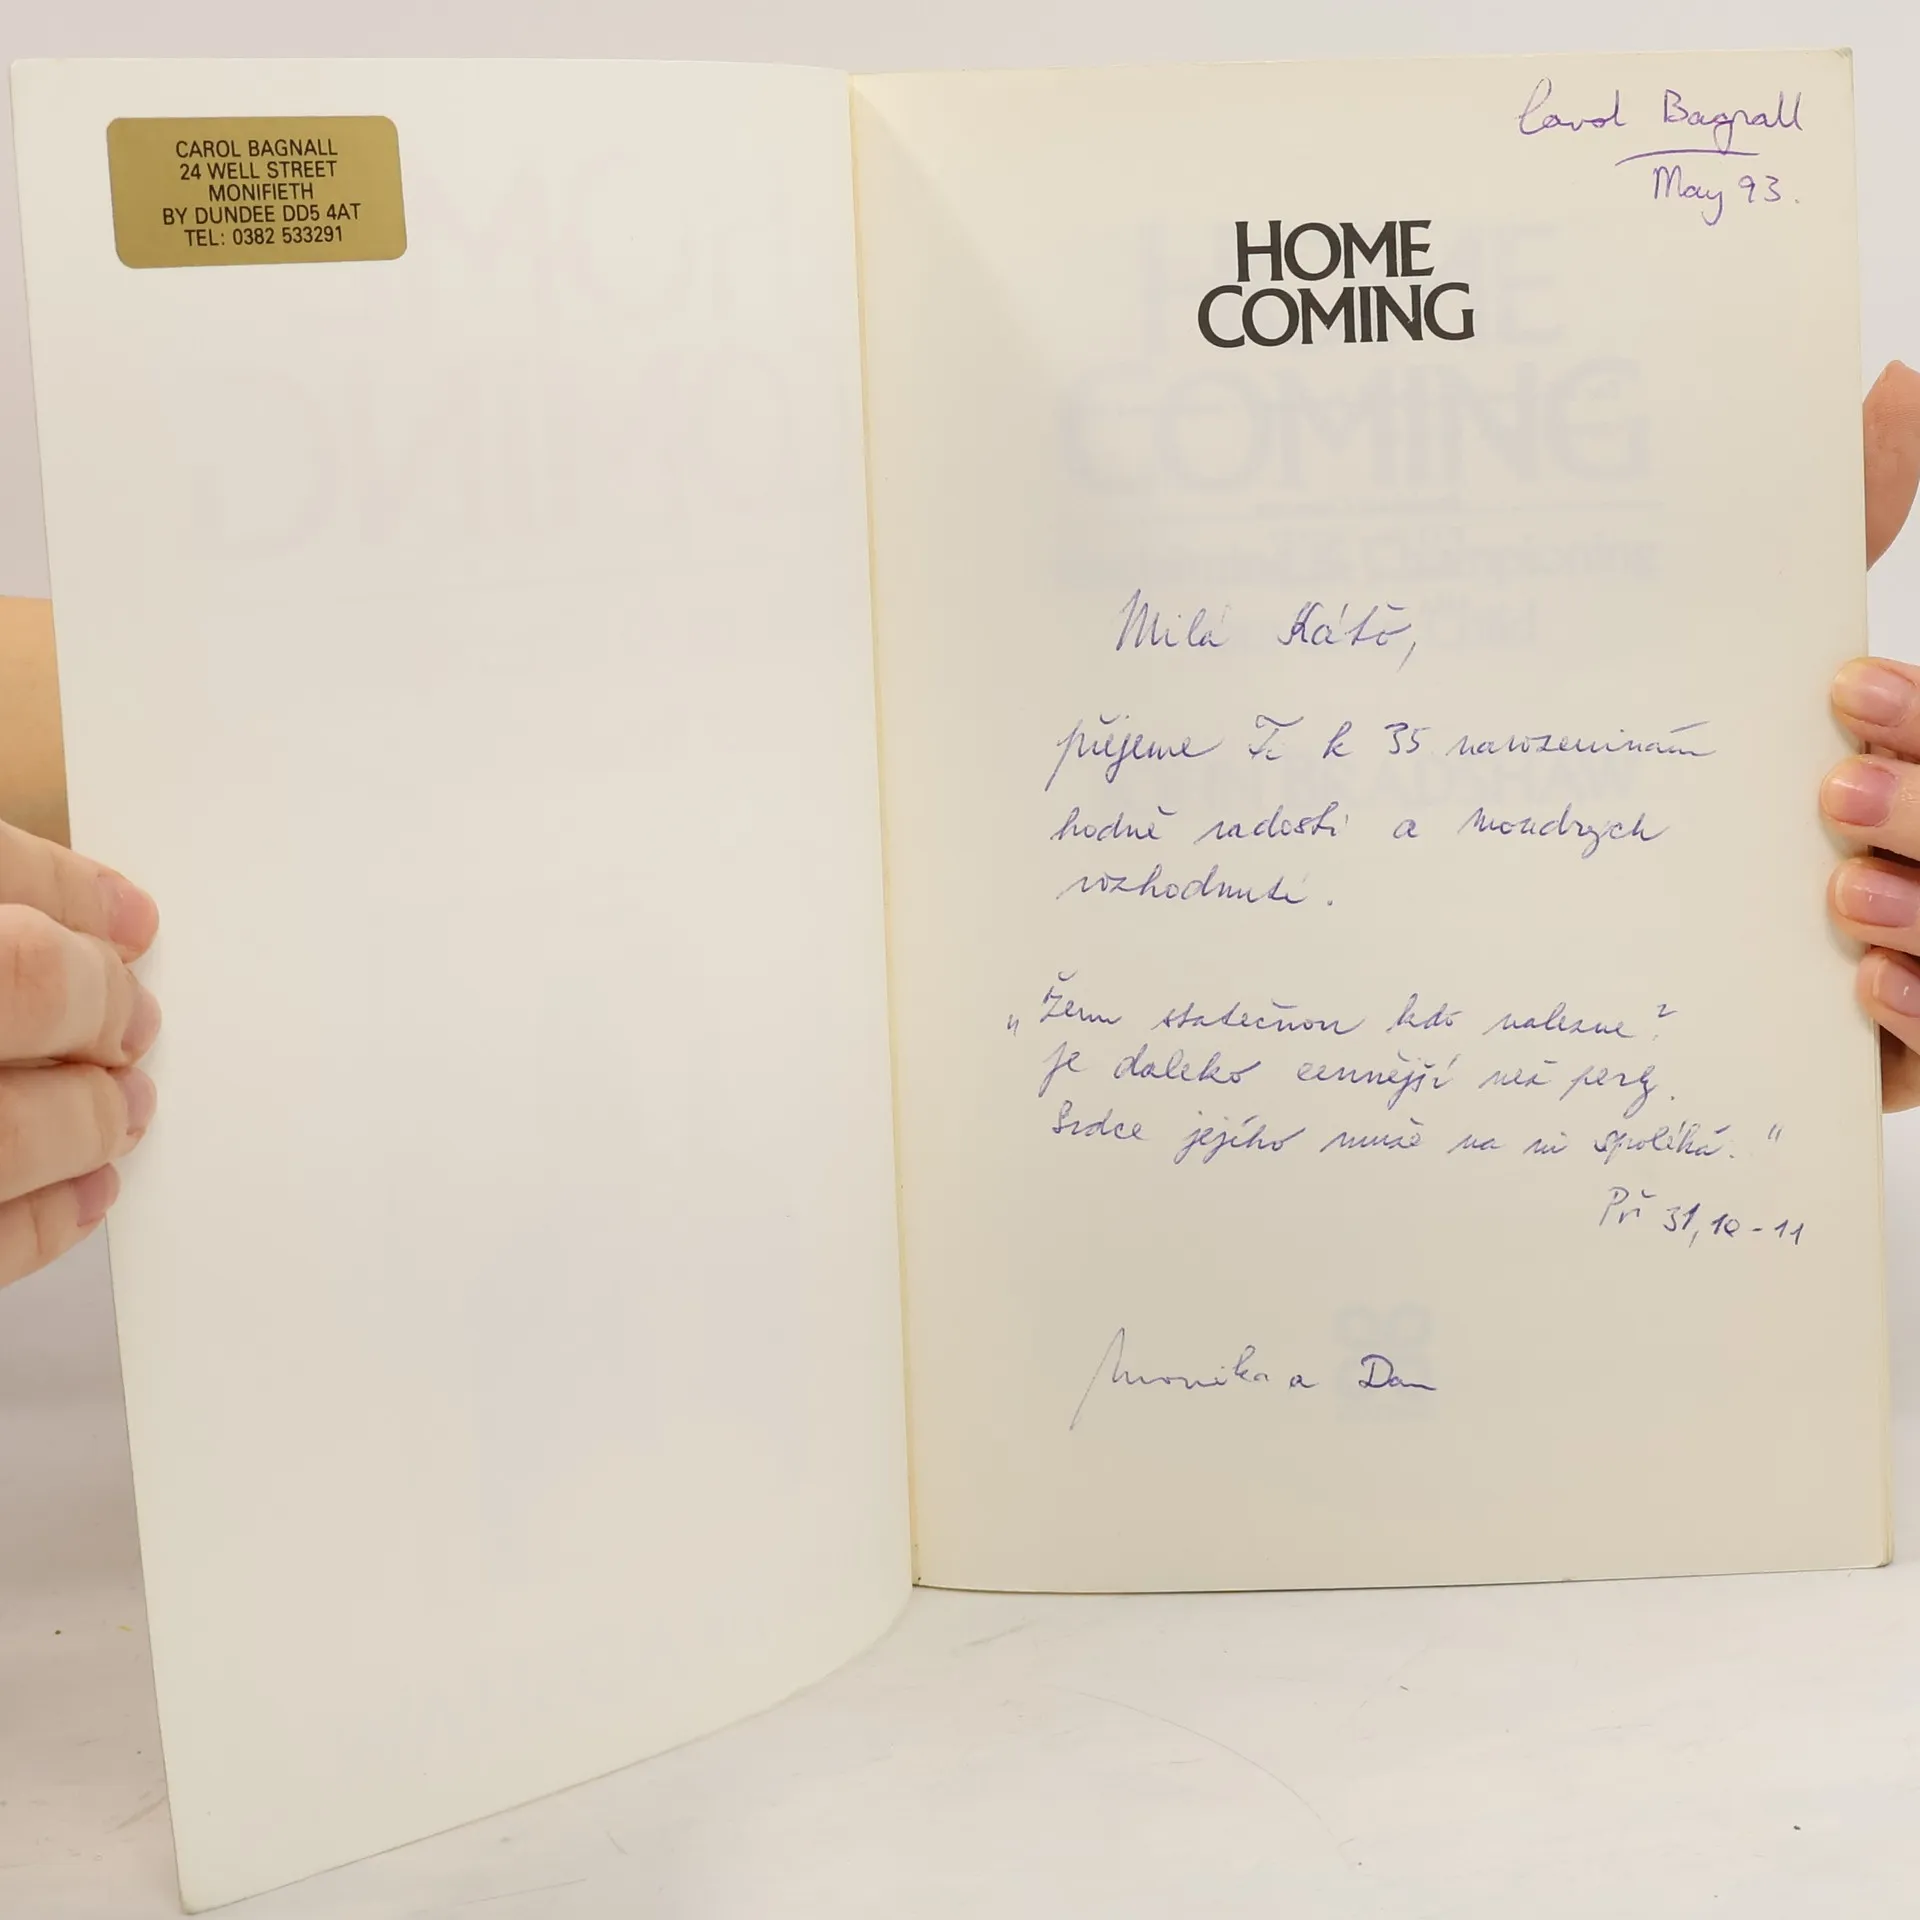 CAROL BAGNALL
24 WELL STREET
MONIFIETH
BY DUNDEE DD5 4AT
TEL: 0382 533291
Carol Bagnall
May 93.
HOME
COMING
Milá Kátě,
přejeme Ti k 35 narozeninám
hodně radosti a moudrých
rozhodnutí.
„Ženu statečnou kdo nalezne?
Je daleko cennější než perly.
Srdce jejího muže na ni spoléhá."
Př 31,10-11
Monika a Dan